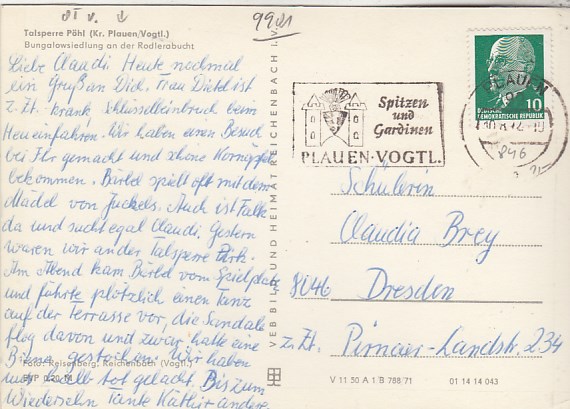 9921
Talsperre Pöhl (Kr. Plauen/Vogtl.)
Bungalowsiedlung an der Rodlerabucht
Liebe Claudi. Heute nochmal
ein Gruß an Dich. Frau Dietel ist
z. Zt. krank, Schlüsselbeinbruch beim
Heueinfahren. Wir haben einen Besuch
bei ihr gemacht und schöne
bekommen. Bärbel spielt oft mit dem
Mädel von Juckels. Auch ist Falk
da und sucht egal Claudi. Gestern
waren wir an der Talsperre Pirk.
Am Abend kam Bärbel vom Spielplatz
und führte plötzlich einen Tanz
auf der Terrasse vor, die Sandale
flog davon und zwar hatte eine
Biene gestochen. Wir haben
uns halb tot gelacht. Bis zum
Wiedersehn Tante Käthe
Foto: Reisenberg, Reichenbach (Vogtl.)
EVP 0,20 M
VEB BILD UND HEIMAT REICHENBACH I. V.
Spitzen
und
Gardinen
PLAUEN·VOGTL.
PLAUEN
10
DEUTSCHE
DEMOKRATISCHE REPUBLIK
Schülerin
Claudia Brey
8046 Dresden
z. Zt. Pirnaer-Landstr. 234
V 11 50 A 1 B 788/71 01 14 14 043